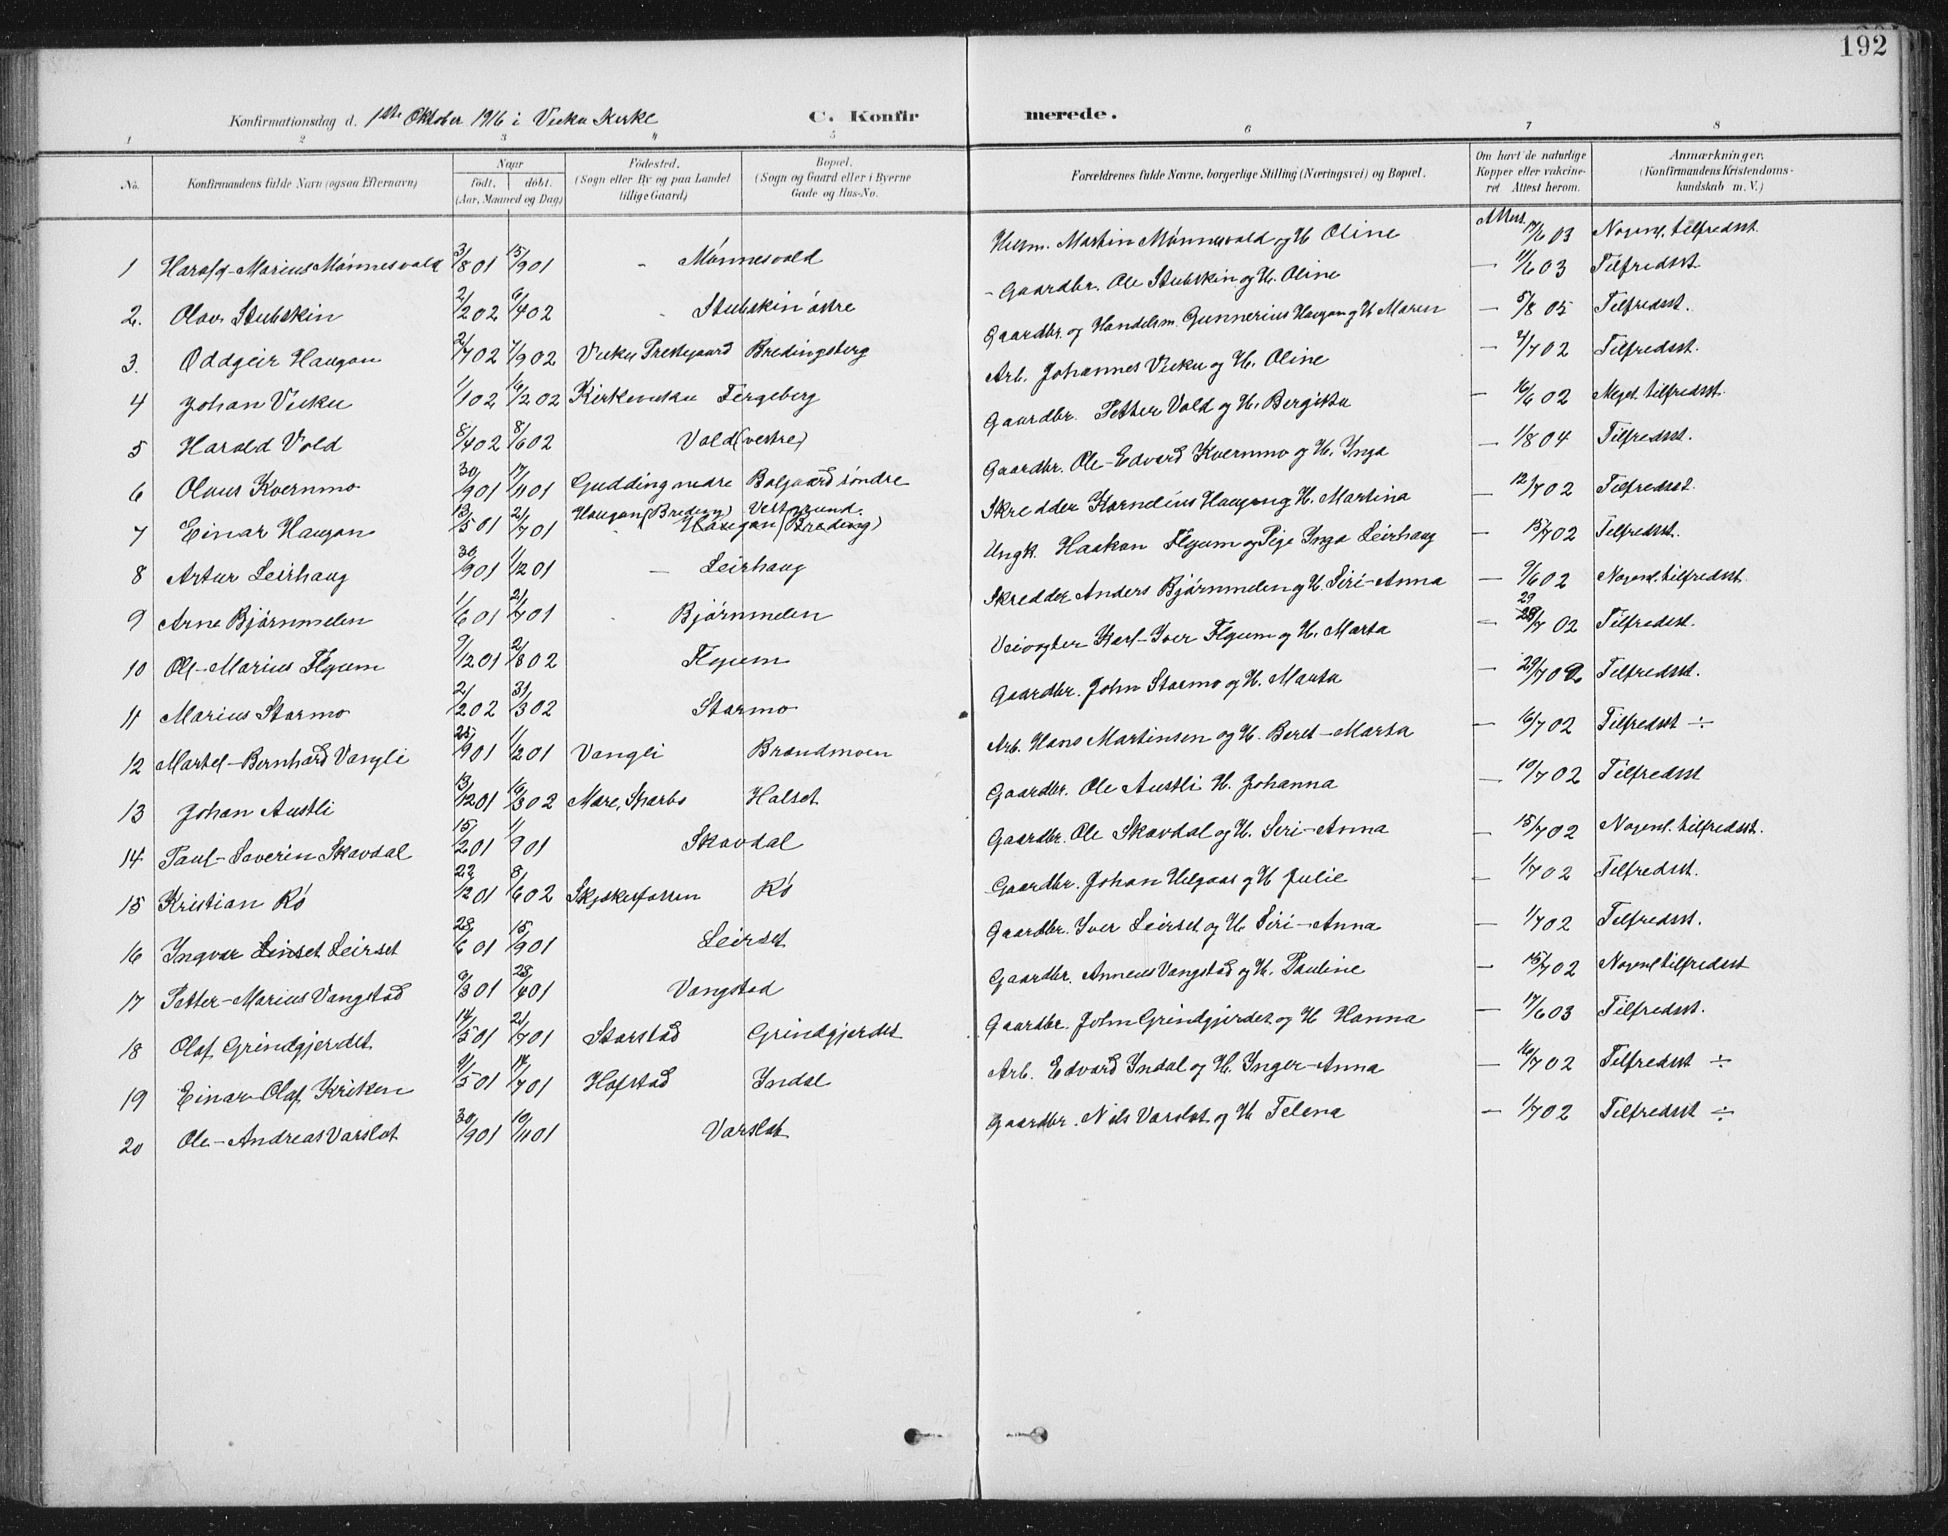 192
Konfirmationsdag d. 1ste Oktober 1916 i Vuku Kirke C. Konfirmerede.
1 2 3 4 5 6 7 8
No. Konfirmandens fulde Navn (ogsaa Efternavn) Naar født, døbt. (Aar, Maaned og Dag) Fødested. (Sogn eller By og paa Landet tillige Gaard) Bopæl. (Sogn og Gaard eller i Byerne Gade og Hus-No. Forældrenes fulde Navne, borgerlige Stilling (Næringsvei) og Bopæl. Om havt de naturlige Kopper eller vakcineret Attest herom. Anmærkninger. (Konfirmandens Kristendomskundskab m. V.)
1 Harald-Marius Mønnesvald 3/8 01 15/9 01 " Mønnesvald Husm. Martin Mønnesvold og H. Oline Attest 17/6 03 Nogenl. tilfredsst.
2. Olav Stubskin 2/2 02 6/4 02 " Stubskin østre Gaardbr. Ole Stubskin og H. Oline — 11/6 03 Tilfredsst.
3. Oddgeir Haugan 2/7 02 7/9 02 Vuku Prestegaard Bredingsberg Gaardbr. og Handelsm. Gunnerius Haugan og H. Maren — 5/8 05 Tilfredsst.
4 Johan Vuku 1/1 02 16/2 02 Kirkevuku Fergeberg Arb. Johannes Vuku og H. Oline — 4/7 02 Tilfredsst.
5 Harald Vold 8/4 02 8/6 02 Vold (vestre) Gaardbr. Petter Vold og H. Bergitta — 16/6 02 Meget tilfredsst.
6 Olaus Kvernmo 30/9 01 17/11 01 Gudding nedre Balgaard søndre Gaardbr. Ole-Edvard Kvernmo og H. Inga — 1/8 04 Tilfredsst.
7 Einar Haugan 13/5 01 21/7 01 Haugan (Breding) Vestgrund. Haugan (Breding) Skredder Kornelius Haugan og H. Martina — 12/7 02 Tilfredsst.
8 Artur Leirhaug 30/9 01 1/12 01 — Leirhaug Ungk. Haakon Flyum og Pige Inga Leirhaug — 15/7 02 Tilfredsst.
9 Arne Bjørnmelen 1/6 01 21/7 01 " Bjørnmelen Skredder Anders Bjørnmelen og H. Siri-Anna — 9/6 02 Nogenl. tilfredsst.
10 Ole-Marius Flyum 9/12 01 2/3 02 Flyum Veivogter Karl-Iver Flyum og H. Marta — 29/7 02 Tilfredsst.
11 Marius Starmo 2/2 02 31/3 02 Starmo Gaardbr. John Starmo og H. Marta — 29/7 02 Tilfredsst.
12 Martel-Bernhard Vangli /9 01 1/12 01 Vangli Brandmoen Arb. Hans Martinsen og H. Beret-Marta — 16/7 02 Tilfredsst ÷
13 Johan Austli 13/12 01 16/3 02 Mære, Sparbo Halset Gaardbr. Ole Austli H. Johanna — 10/7 02 Tilfredsst
14 Paul-Severin Skavdal 15/2 01 1/9 01 Skavdal Gaardbr. Ole Skavdal og H. Siri-Anna — 15/7 02 Nogenl. tilfredsst.
15 Kristian Rø 22/12 01 8/6 02 Skjækerfossen Rø Gaardbr. Johan Helgaas og H Julie — 1/7 02 Tilfredsst.
16 Ingvar Leirset 28/6 01 15/9 01 Leirset Gaardbr. Iver Leirset og H. Siri-Anna — 1/7 02 Tilfredsst.
17 Petter-Marius Vangstad 9/3 01 28/4 01 Vangstad Gaardbr. Anneus Vangstad og H. Pauline — 15/7 02 Nogenl tilfredsst
18 Olaf Grindgjerdet 14/5 01 21/7 01 Storstad Grindgjerdet Gaardbr. John Grindgjerdet og H Hanna — 17/6 03 Tilfredsst.
19 Einar-Olaf Kriken 9/5 01 14/7 01 Hofstad Indal Arb. Edvard Indal og H. Inger-Anna — 16/7 02 Tilfredsst ÷
20 Ole-Andreas Varslot 30/9 01 10/11 01 Varslot Gaardbr. Nils Varslot og H Telena — 1/7 02 Tilfredsst ÷